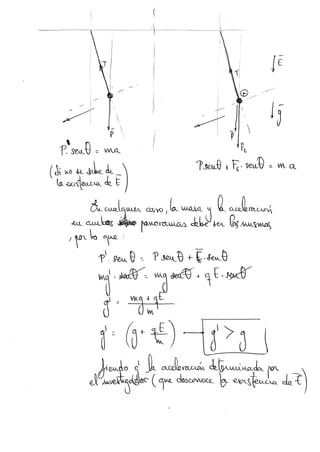 T
T
⊕
E
g
P
P
Fe
P'. senθ = m a
P senθ + Fe . senθ = m . a
(si no se sabe de
la existencia de E)
En cualquier caso, la masa y la aceleración
en ambos panoramas debe ser las mismas,
por lo que :
P'. senθ = P senθ + E . senθ
mg' . senθ = mg senθ + q E . senθ
g' = mg + qE / m
g' = (g + qE/m) → g' > g
Siendo g' la aceleración determinada por
el investigador (que desconoce la existencia de E)